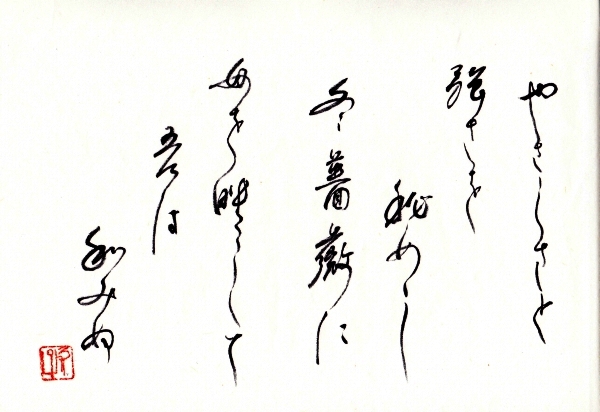 やさしさと
強さを
秘めし
冬薔薇に
母を映して
吾は
和みぬ